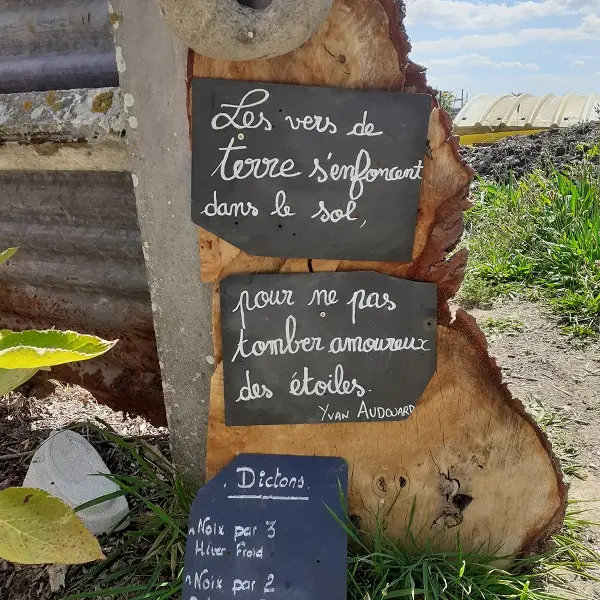 Les vers de
terre s'enfoncent
dans le sol,
pour ne pas
tomber amoureux
des étoiles.
YVAN AUDOUARD
. Dictons.
~ Noix par 3
Hiver Froid
~ Noix par 2